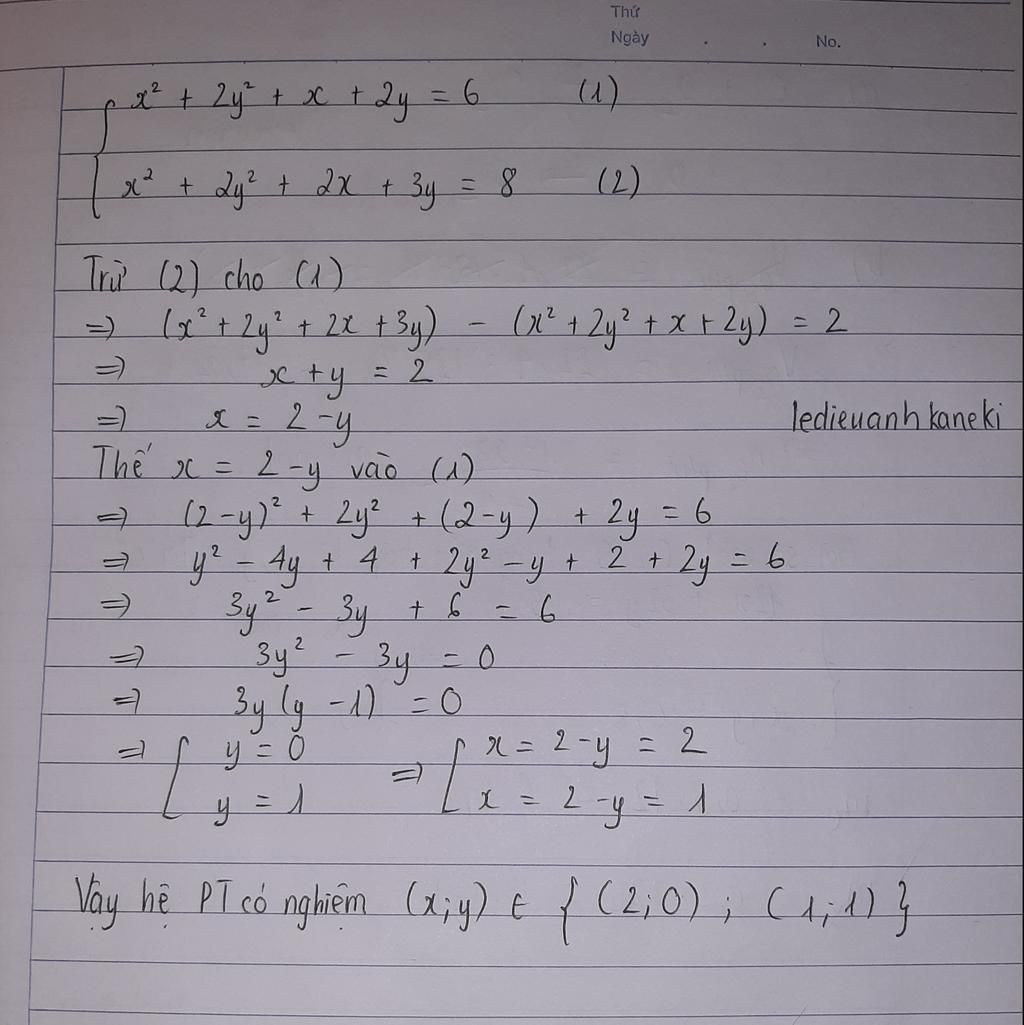 Thứ
Ngày . . No.
{ x² + 2y² + x + 2y = 6 (1)
x² + 2y² + 2x + 3y = 8 (2)
Trừ (2) cho (1)
=) (x² + 2y² + 2x + 3y) - (x² + 2y² + x + 2y) = 2
=) x + y = 2
=) x = 2 - y
ledieuanhkaneki
Thế x = 2 - y vào (1)
=) (2-y)² + 2y² + (2-y) + 2y = 6
=) y² - 4y + 4 + 2y² - y + 2 + 2y = 6
=) 3y² - 3y + 6 = 6
=) 3y² - 3y = 0
=) 3y (y - 1) = 0
=) [ y = 0 =) [ x = 2 - y = 2
y = 1 x = 2 - y = 1
Vậy hệ PT có nghiệm (x;y) ∈ { (2;0) ; (1;1) }